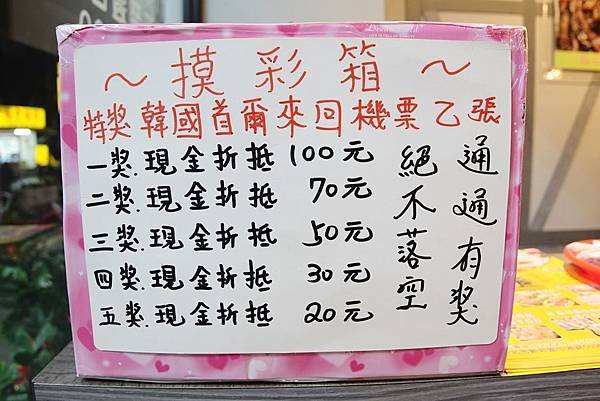 ～摸彩箱～
特獎韓國首爾來回機票乙張
一獎.現金折抵 100元
二獎.現金折抵 70元
三獎.現金折抵 50元
四獎.現金折抵 30元
五獎.現金折抵 20元
通通有獎
絕不落空